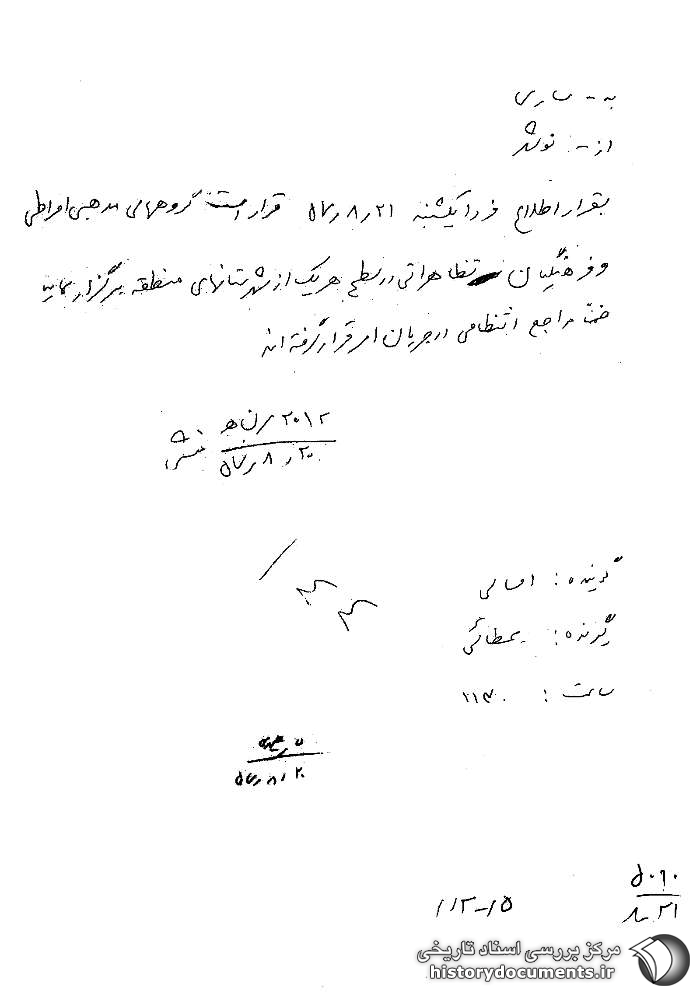 به - ساری
از - : نوشهر
بقرار اطلاع فردا یکشنبه ۵۷٫۸٫۲۱ قرار است گروههای مذهبی افراطی
و فرهنگیان تظاهراتی در سطح هر یک از شهرستانهای منطقه برگزار نمایند
ضمناً مراجع انتظامی در جریان امر قرار گرفته اند
۲۰۱۲
۵۷٫۸٫۲۰
گوینده :
گیرنده :
ساعت : ۲۱۳۰
۵۷٫۸٫۲۰
۵۰۶۰
۲۱
۱۱۲-۱۵
مرکز بررسی اسناد تاریخی
historydocuments.ir